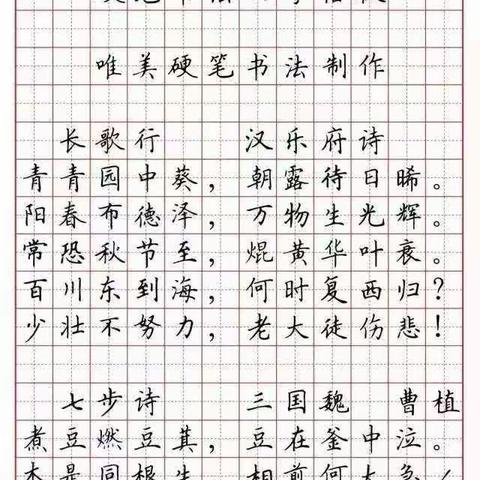 唯美硬笔书法制作
长歌行 汉乐府诗
青青园中葵，朝露待日晞。
阳春布德泽，万物生光辉。
常恐秋节至，焜黄华叶衰。
百川东到海，何时复西归？
少壮不努力，老大徒伤悲！
七步诗 三国魏 曹植
煮豆燃豆萁，豆在釜中泣。
本是同根生，相煎何太急